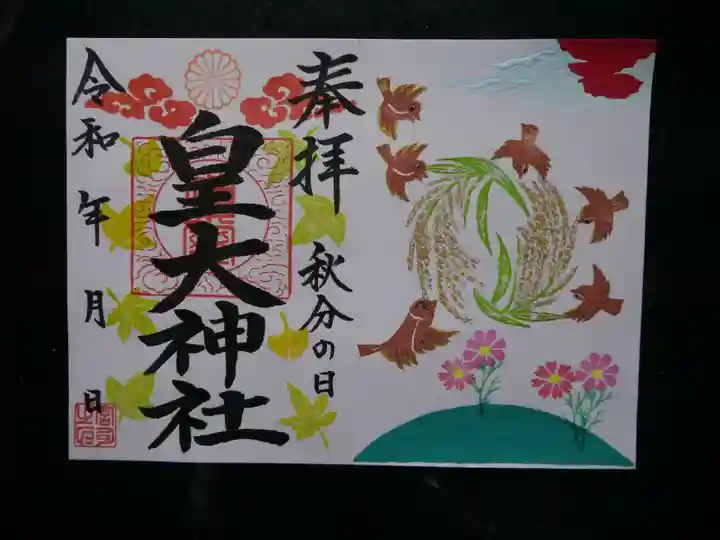 奉拝 秋分の日
皇大神社
令和 年 月 日